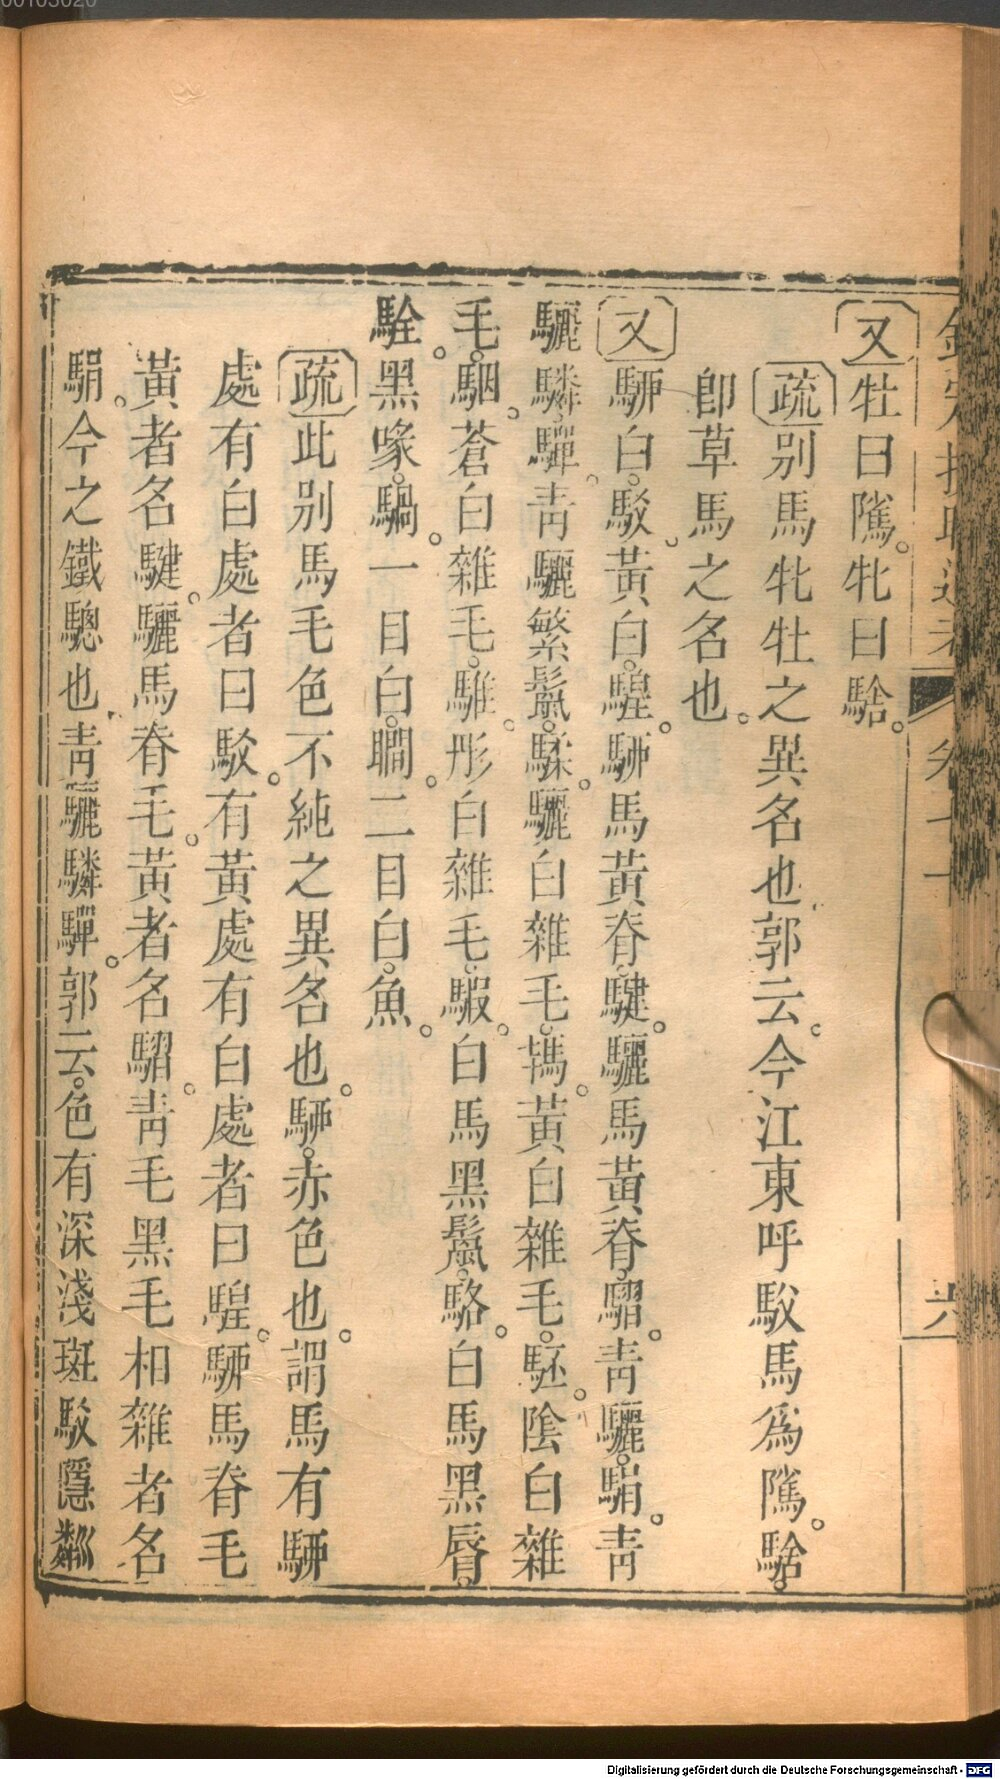 欽定授時通考 六
又牡曰隲。牝曰騇。
疏别馬牝牡之異名也郭云。今江東呼駁馬爲隲。騇。
卽草馬之名也。
又駵白。駁。黃白。騜。駵馬黃脊。騝。驪馬黃脊。騽。靑驪。駽。靑
驪驎。驒。靑驪繁鬛。騥。驪白雜毛。鴇。黃白雜毛。駓。陰白雜
毛。駰。蒼白雜毛。騅。彤白雜毛。騢。白馬黑鬛。駱。白馬黑脣。
駩。黑喙。騧。一目白。瞷。二目白。魚。
疏此别馬毛色不純之異名也。駵。赤色也。謂馬有駵
處有白處者曰駁。有黃處有白處者曰騜。駵馬脊毛
黃者名騝。驪馬脊毛。黃者名騽。靑毛黑毛相雜者名
駽。今之鐵驄也。靑驪驎驒。郭云。色有深淺斑駁隱粼
Digitalisierung gefördert durch die Deutsche Forschungsgemeinschaft - DFG